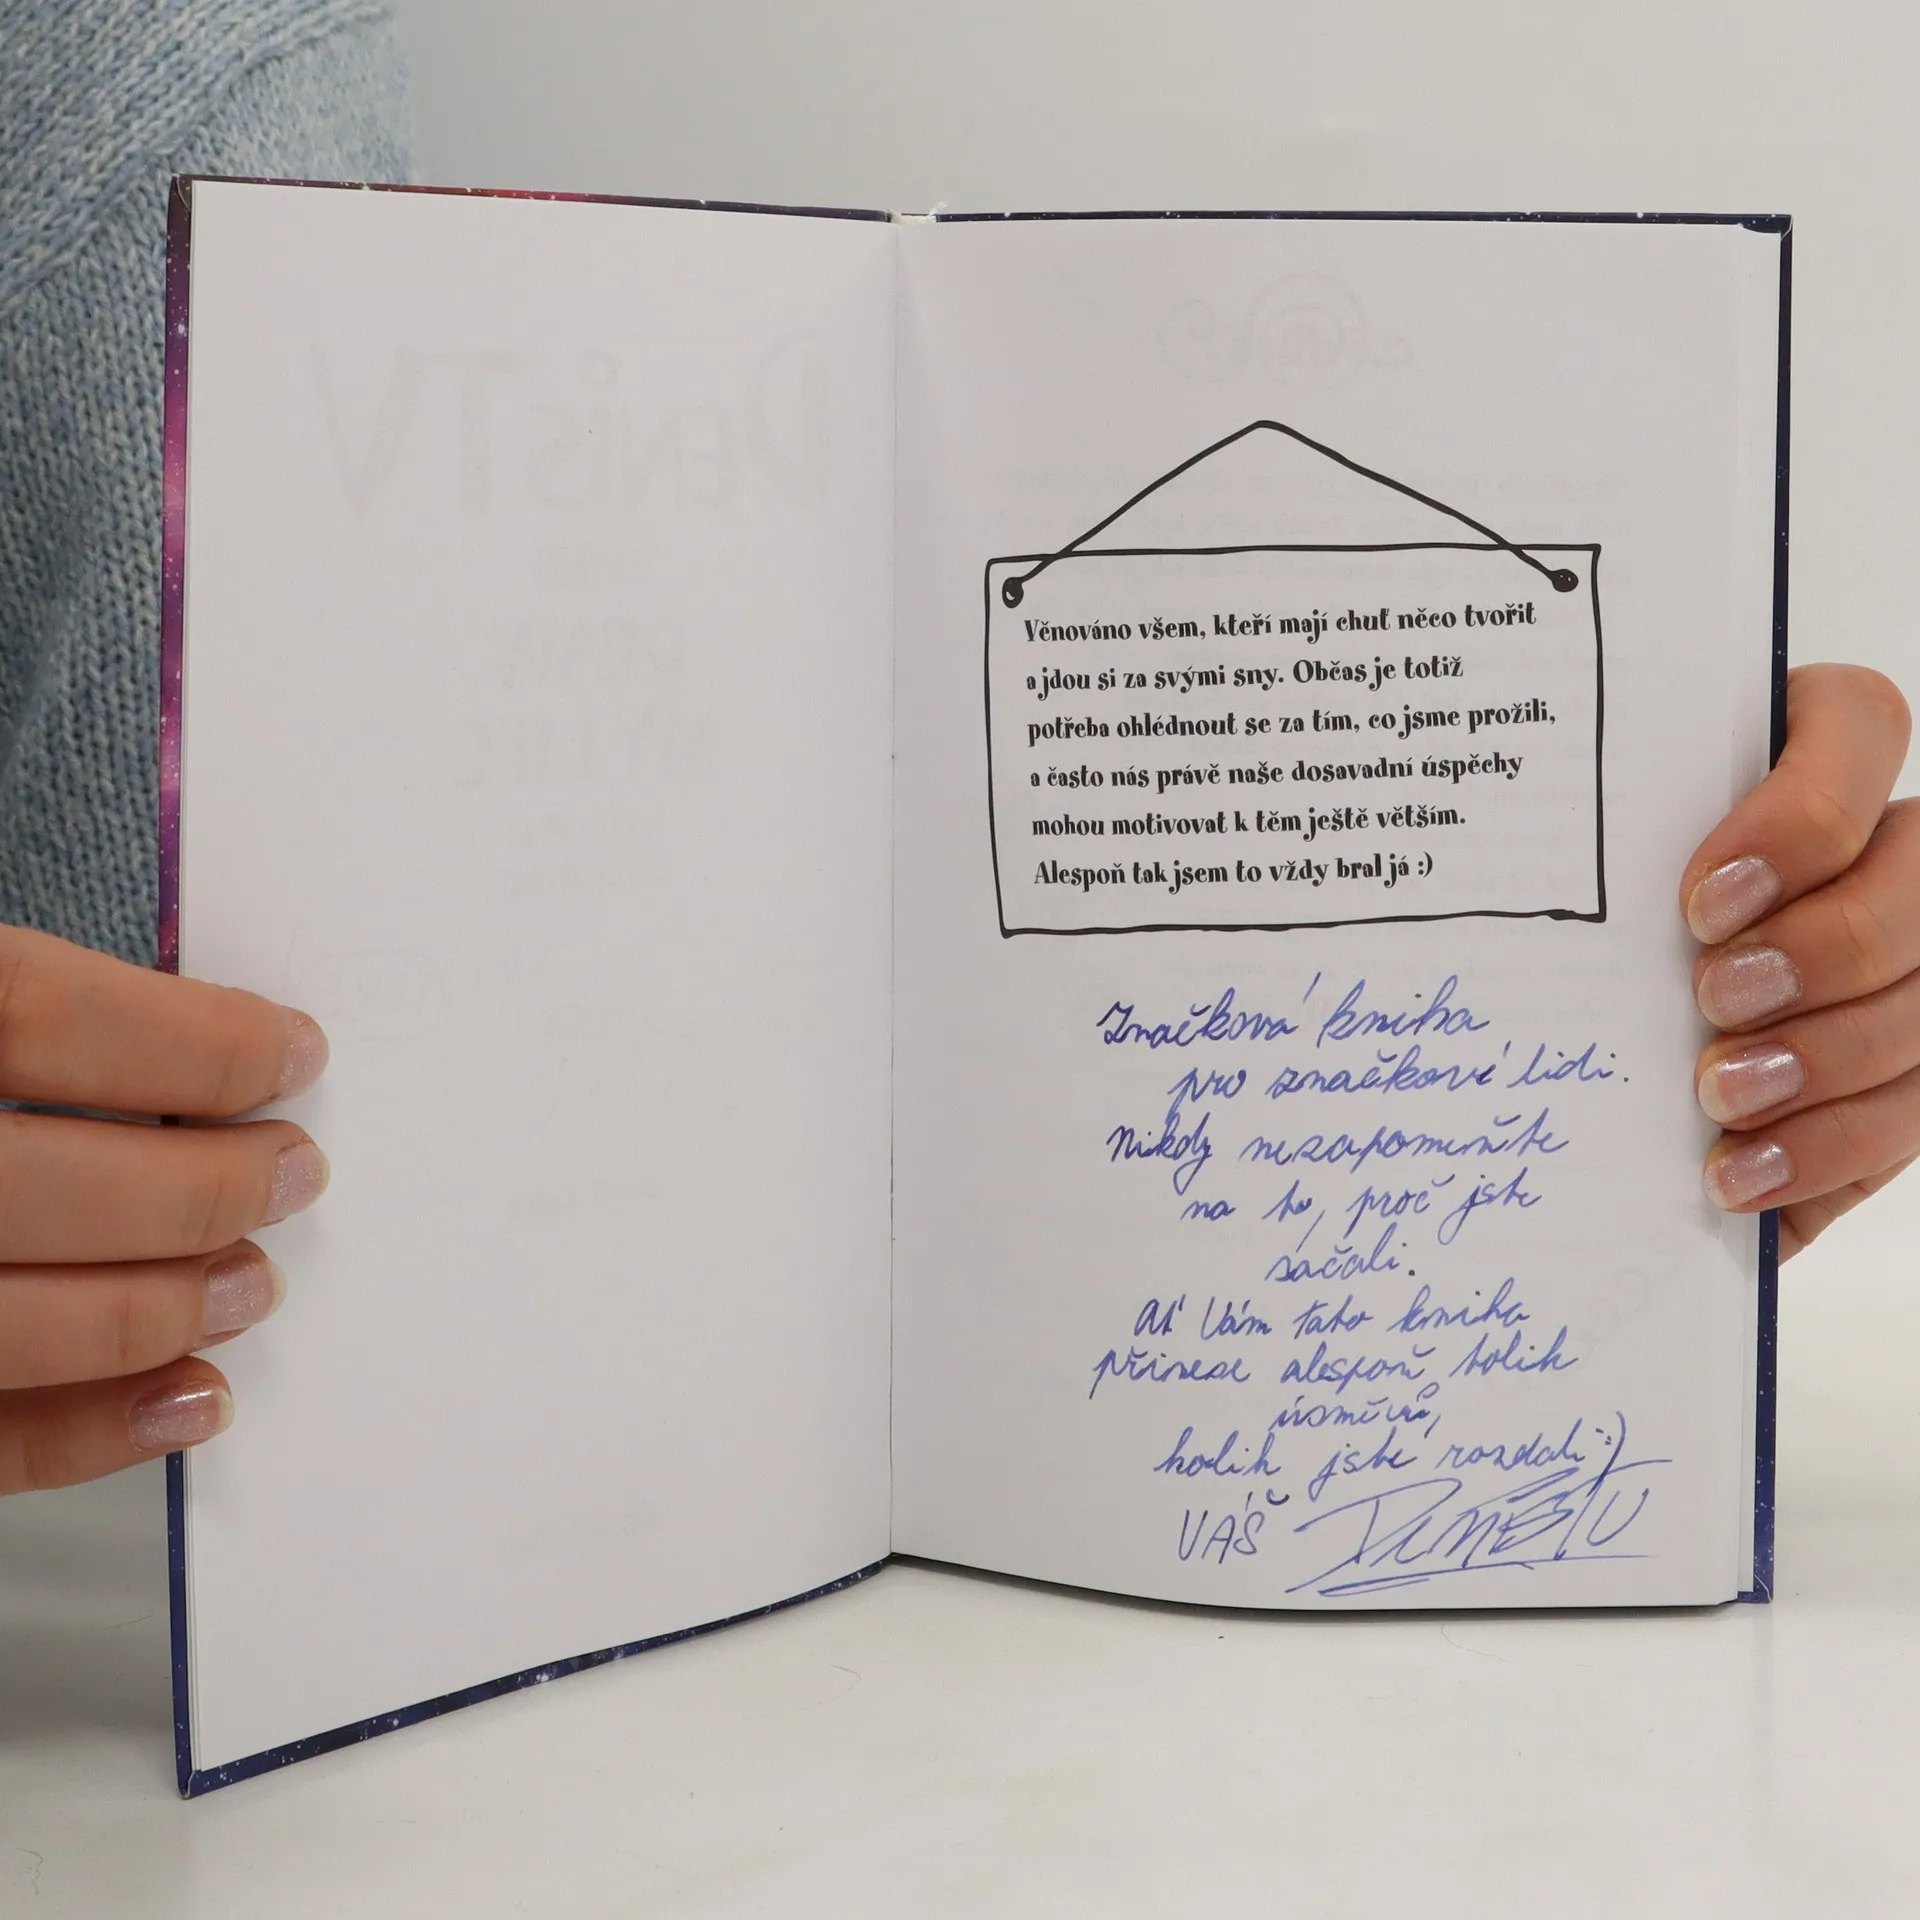 Věnováno všem, kteří mají chuť něco tvořit
a jdou si za svými sny. Občas je totiž
potřeba ohlédnout se za tím, co jsme prožili,
a často nás právě naše dosavadní úspěchy
mohou motivovat k těm ještě větším.
Alespoň tak jsem to vždy bral já :)
Značková kniha
pro značkové lidi.
Nikdy nezapomeňte
na to, proč jste
začali.
Ať Vám tato kniha
přinese alespoň tolik
úsměvů,
kolik jste rozdali :)
VÁŠ DENISTV